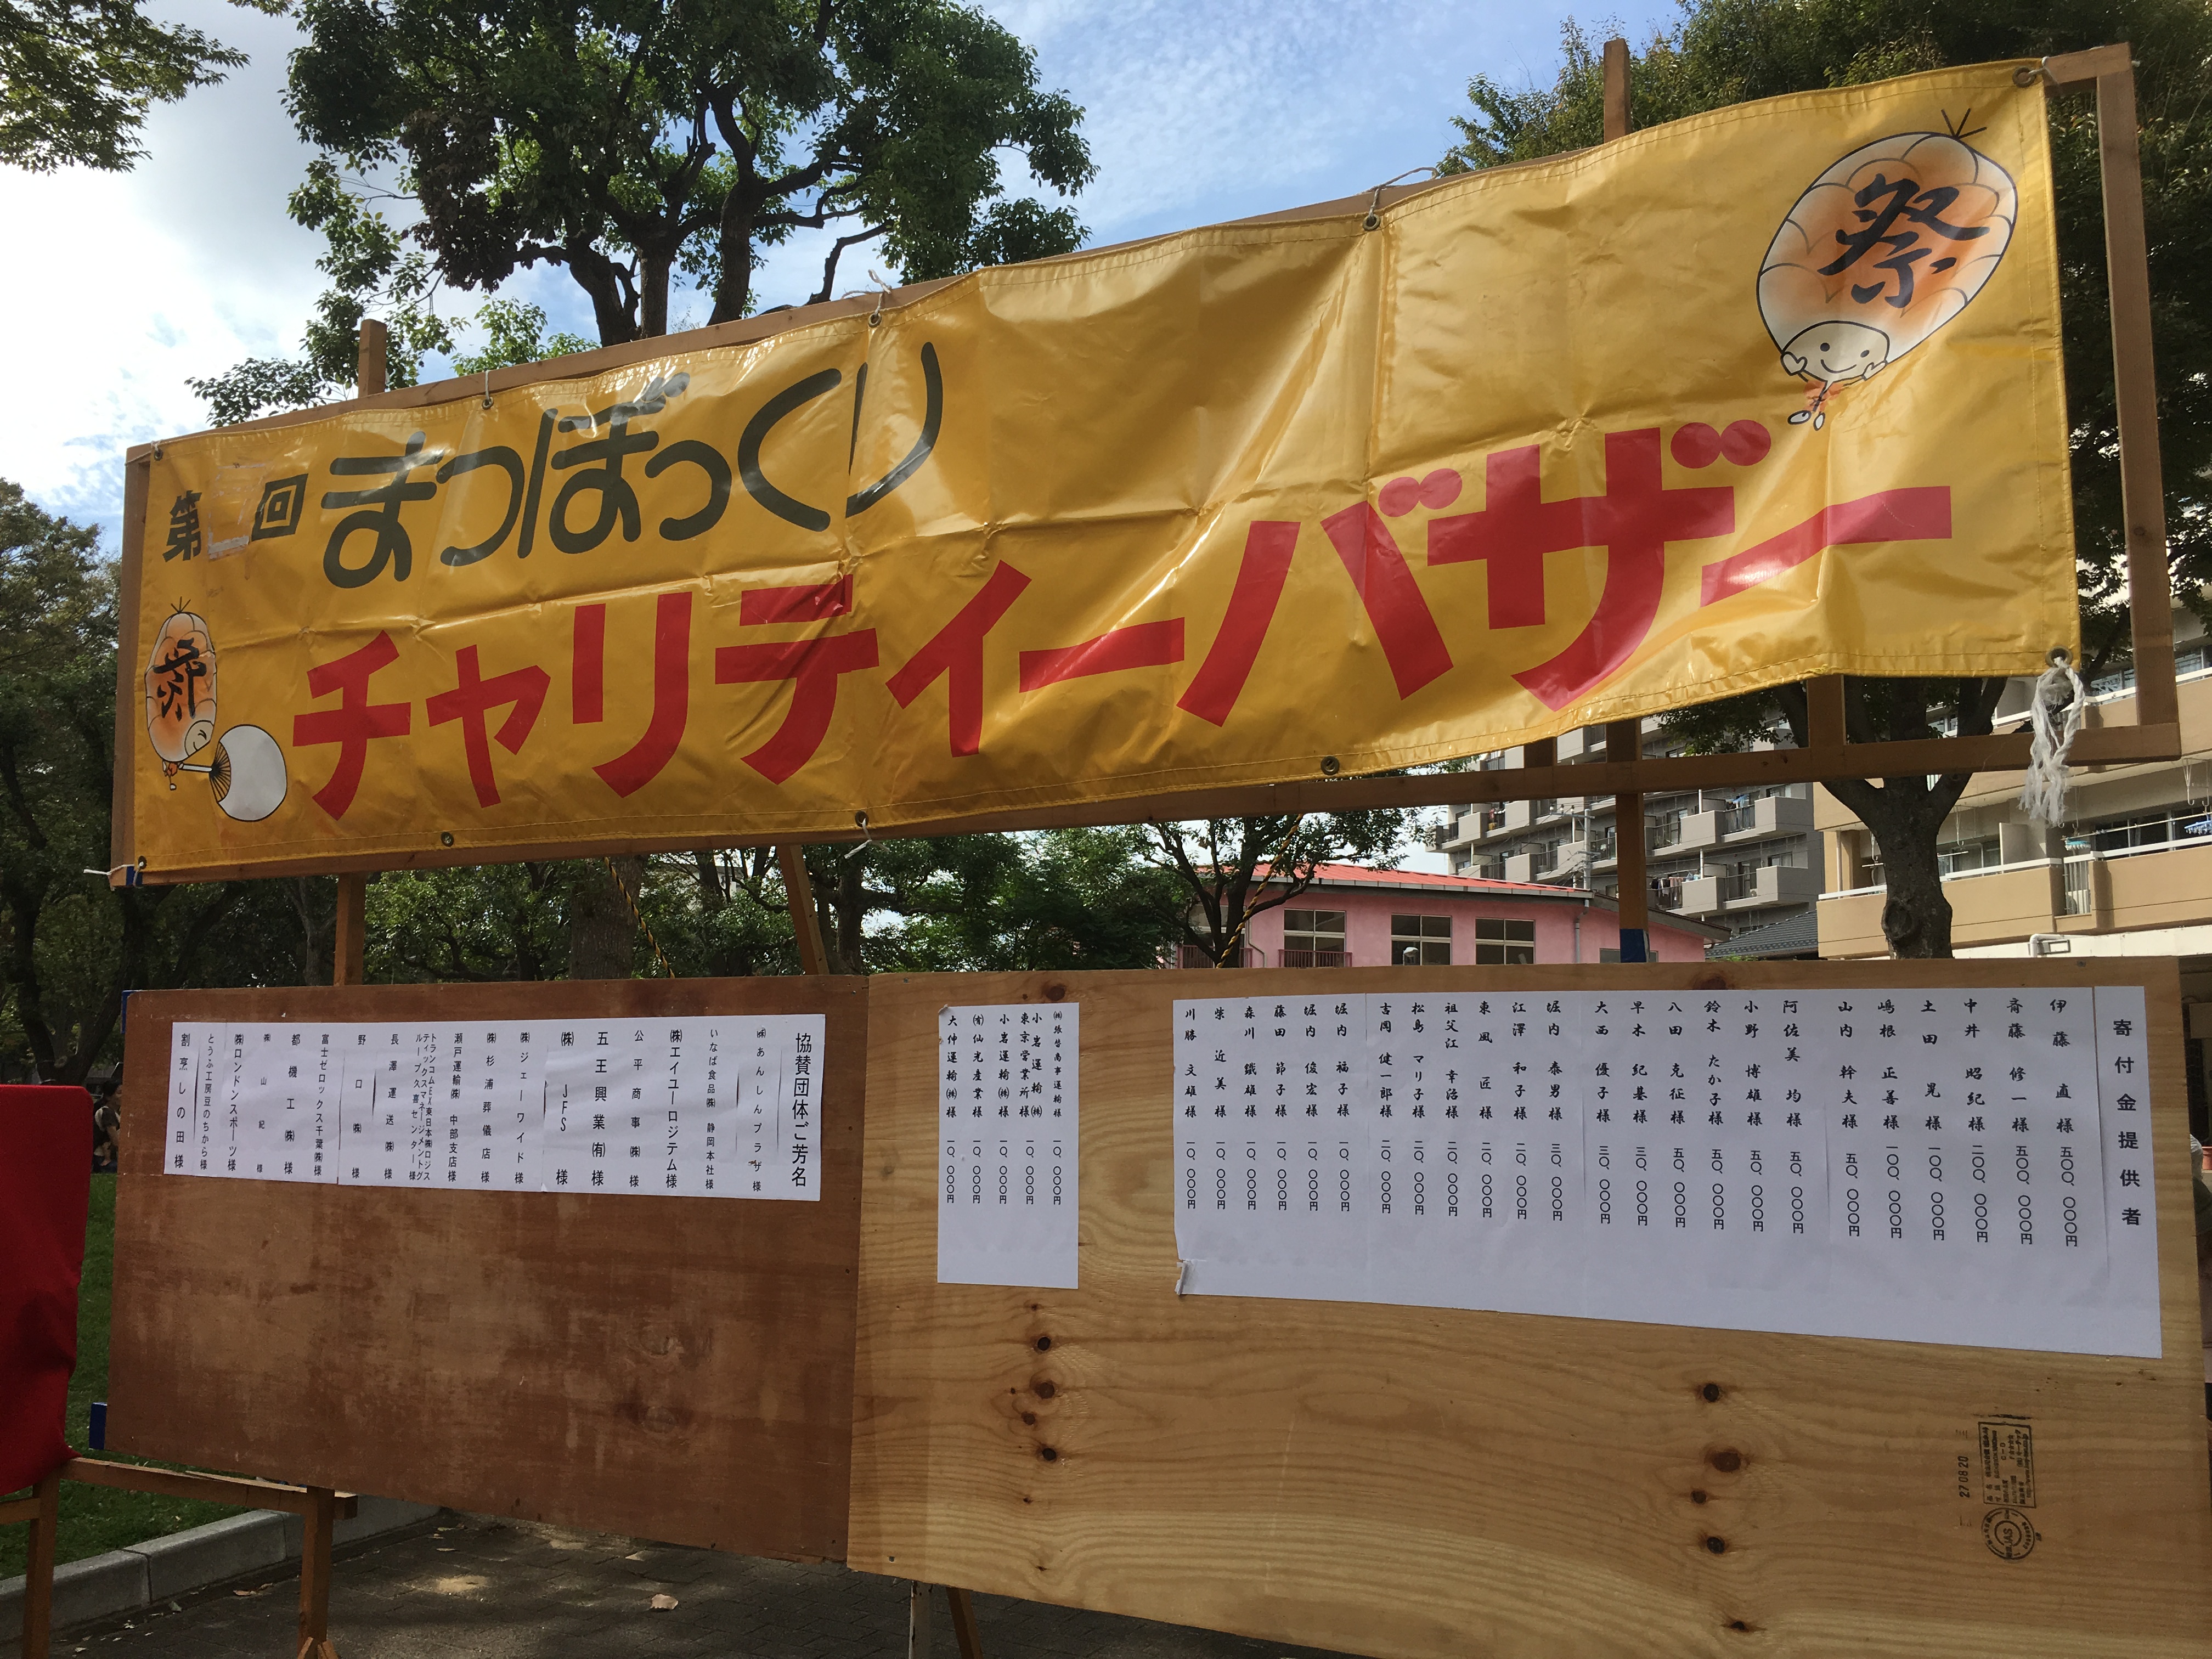 第 回 まつぼっくり
チャリティーバザー
祭
祭
寄付金提供者
伊藤 直 様 五〇〇、〇〇〇円
斉藤 修一 様 五〇〇、〇〇〇円
中井 昭紀 様 二〇〇、〇〇〇円
土田 晃 様 一〇〇、〇〇〇円
嶋根 正善 様 一〇〇、〇〇〇円
山内 幹夫 様 五〇、〇〇〇円
阿佐美 均 様 五〇、〇〇〇円
小野 博雄 様 五〇、〇〇〇円
鈴木 たか子 様 五〇、〇〇〇円
八田 克征 様 五〇、〇〇〇円
早木 紀基 様 三〇、〇〇〇円
大西 優子 様 三〇、〇〇〇円
堀内 泰男 様 三〇、〇〇〇円
江澤 和子 様 二〇、〇〇〇円
東風 匠 様 二〇、〇〇〇円
祖父江 幸治 様 二〇、〇〇〇円
松島 マリ子 様 二〇、〇〇〇円
吉岡 健一郎 様 二〇、〇〇〇円
堀内 福子 様 一〇、〇〇〇円
堀内 俊宏 様 一〇、〇〇〇円
藤田 節子 様 一〇、〇〇〇円
森川 鐵雄 様 一〇、〇〇〇円
柴 近美 様 一〇、〇〇〇円
川勝 文雄 様 一〇、〇〇〇円
商事運輸 様 一〇、〇〇〇円
小岩運輸㈱
東京営業所 様 一〇、〇〇〇円
小岩運輸㈱ 様 一〇、〇〇〇円
㈲仙光産業 様 一〇、〇〇〇円
大仲運輸㈱ 様 一〇、〇〇〇円
協賛団体ご芳名
㈱あんしんプラザ 様
いなば食品㈱ 静岡本社 様
㈱エイユーロジテム 様
公平商事㈱ 様
五王興業㈲ 様
㈱JFS 様
㈱ジェーワイド 様
㈱杉浦葬儀店 様
瀬戸運輸㈱ 中部支店 様
トランコムEX東日本㈱ロジス
ティックスマネージメントグ
ループ久喜センター 様
長澤運送㈱ 様
野口㈱ 様
富士ゼロックス千葉㈱ 様
都機工㈱ 様
㈱山紀 様
㈱ロンドンスポーツ 様
とうふ工房豆のちから 様
割烹しの田 様
27 08 20